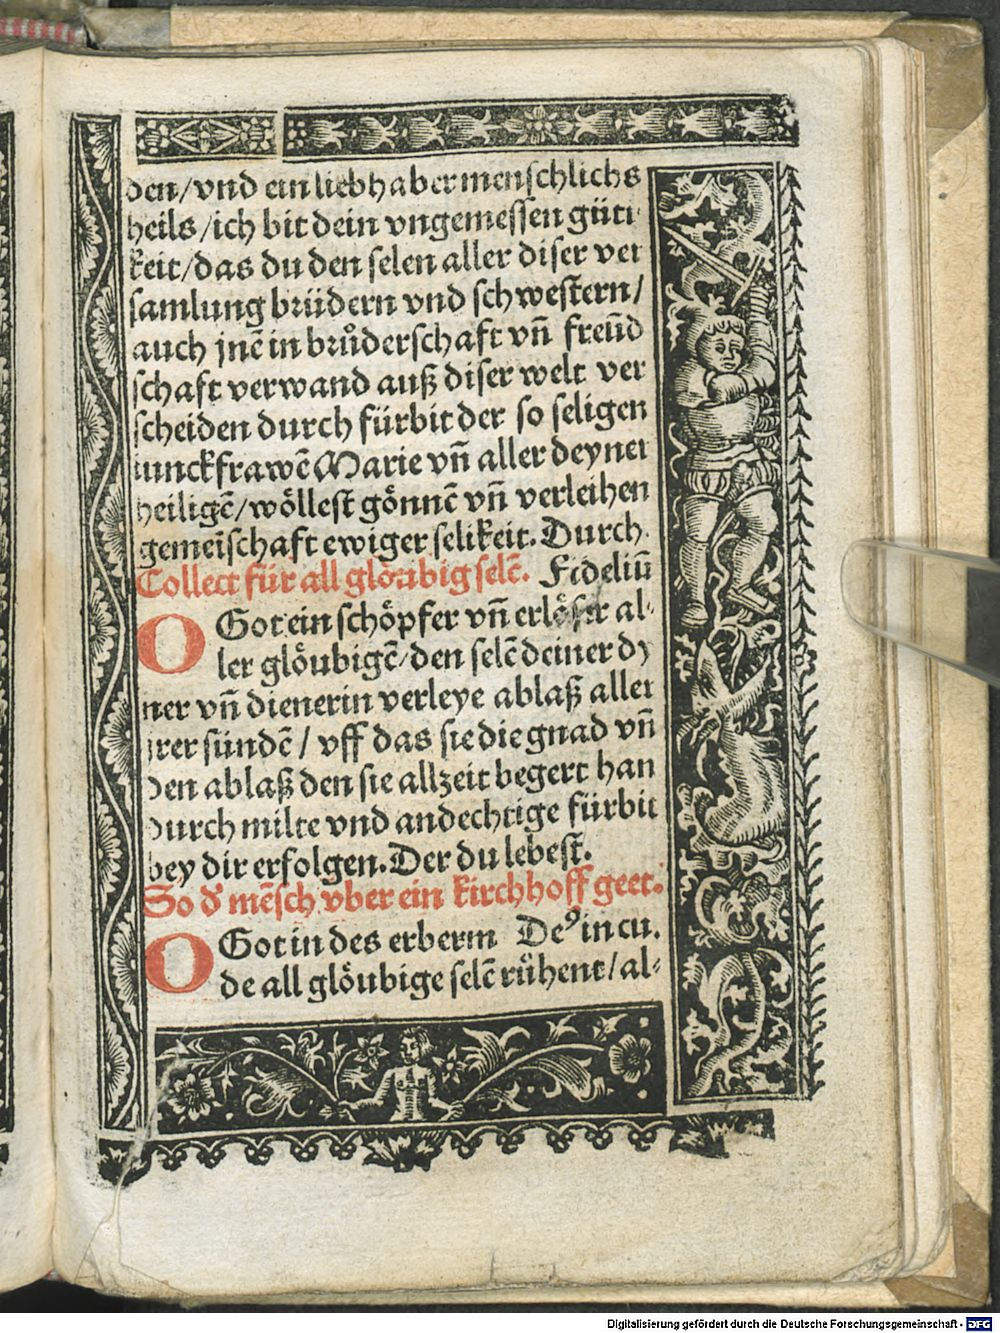 den/vnd ein liebhaber menschlichs
heils/ich bit dein vngemessen güti
keit/das du den selen aller diser ver
samlung brüdern vnd schwestern/
auch jnē in brůderschaft vn̄ freūd
schaft verwand auß diser welt ver
scheiden durch fürbit der so seligen
iunckfrawē Marie vn̄ aller deyner
heiligē/wöllest gönnē vn̄ verleihen
gemeīschaft ewiger selikeit. Durch
Collect für all glöubig selē. Fideliū
O Got ein schöpfer vn̄ erlöser al⸗
ler glöubigē/den selē deiner dy
ner vn̄ dienerin verleye ablaß aller
jrer sündē/ vff das sie die gnad vn̄
den ablaß den sie allzeit begert han
durch milte vnd andechtige fürbit
bey dir erfolgen. Der du lebest.
So d' mēsch vber ein kirchhoff geet.
O Got in des erberm De⁹ in cu.
de all glöubige selē rühent/al⸗
Digitalisierung gefördert durch die Deutsche Forschungsgemeinschaft - DFG